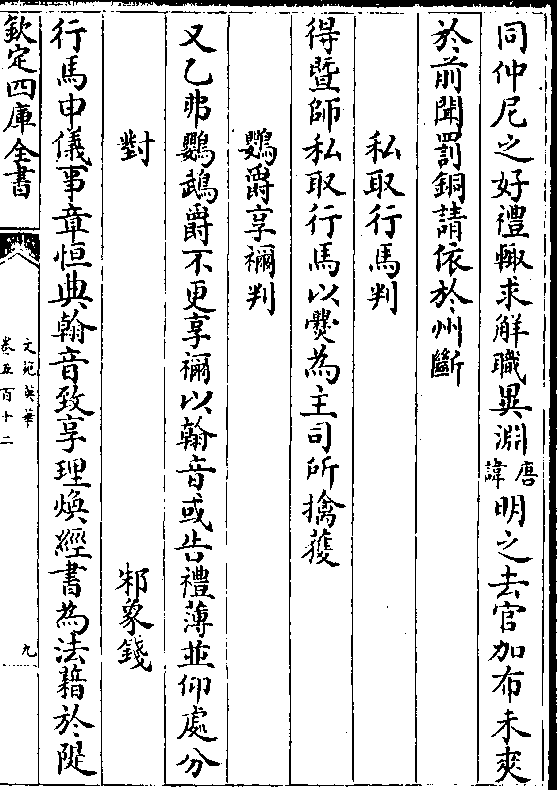 同仲尼之好禮輙求解職異淵唐諱明之去官加布未爽
於前聞罰銅請依於州斷
私取行馬判
得暨師私取行馬以㸑為主司所擒獲
鸚爵享禰判
又乙弗鸚鵡爵不更享禰以翰音或告禮薄並仰處分
對
邾象錢
行馬申儀事章恒典翰音致享理煥經書為法籍於陡
欽定四庫全書
文苑英華
卷五百十二
九